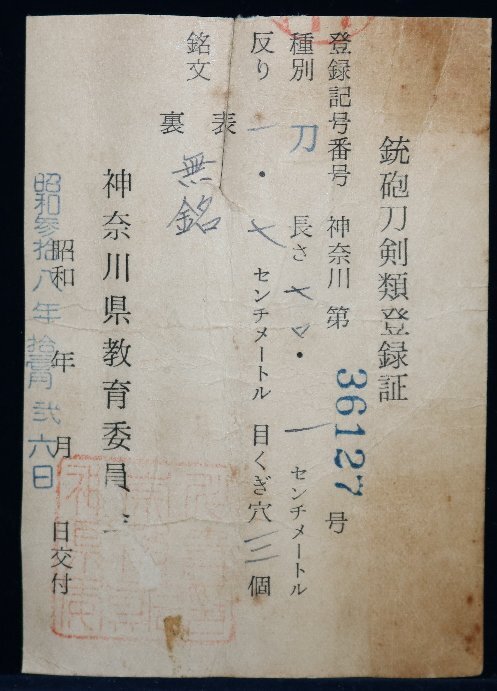 銃砲刀剣類登録証
登録記号番号 神奈川 第 36127 号
種別 刀 長さ 七〇・一 センチメートル
反り 一・七 センチメートル 目くぎ穴 三 個
銘文 表
裏 無銘
神奈川県教育委員
昭和 年 月 日交付
昭和参拾八年 拾壹月 弐六日